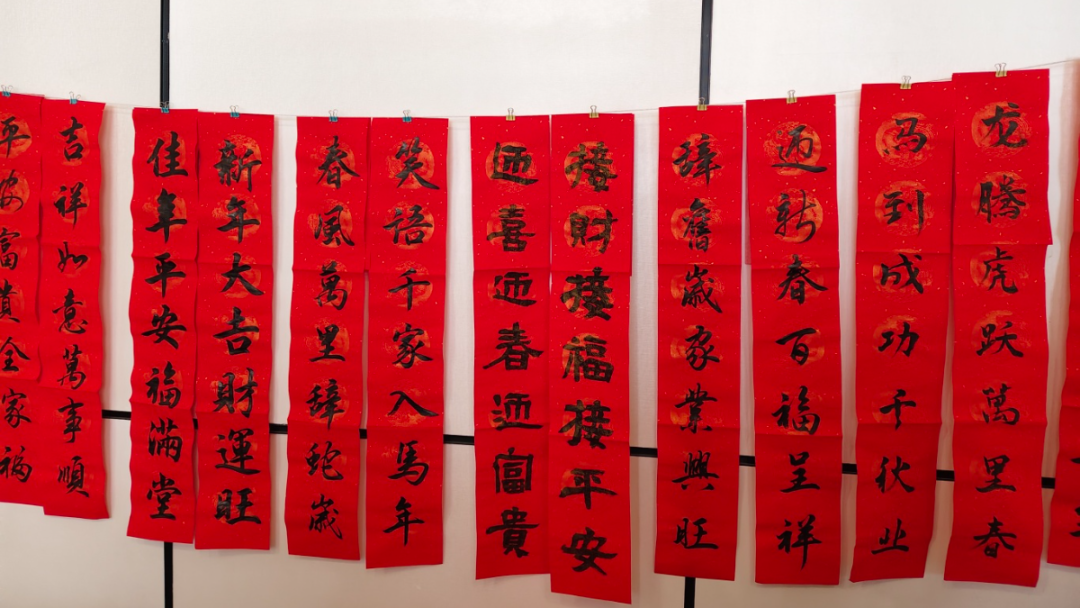 龙腾虎跃萬里春
马到成功千秋业
迎新春百福呈祥
辭舊歲家業興旺
接財接福接平安
迎喜迎春迎富貴
笑語千家入馬年
春風萬里辭蛇歲
新年大吉財運旺
佳年平安福滿堂
吉祥如意萬事順
平安富貴全家福